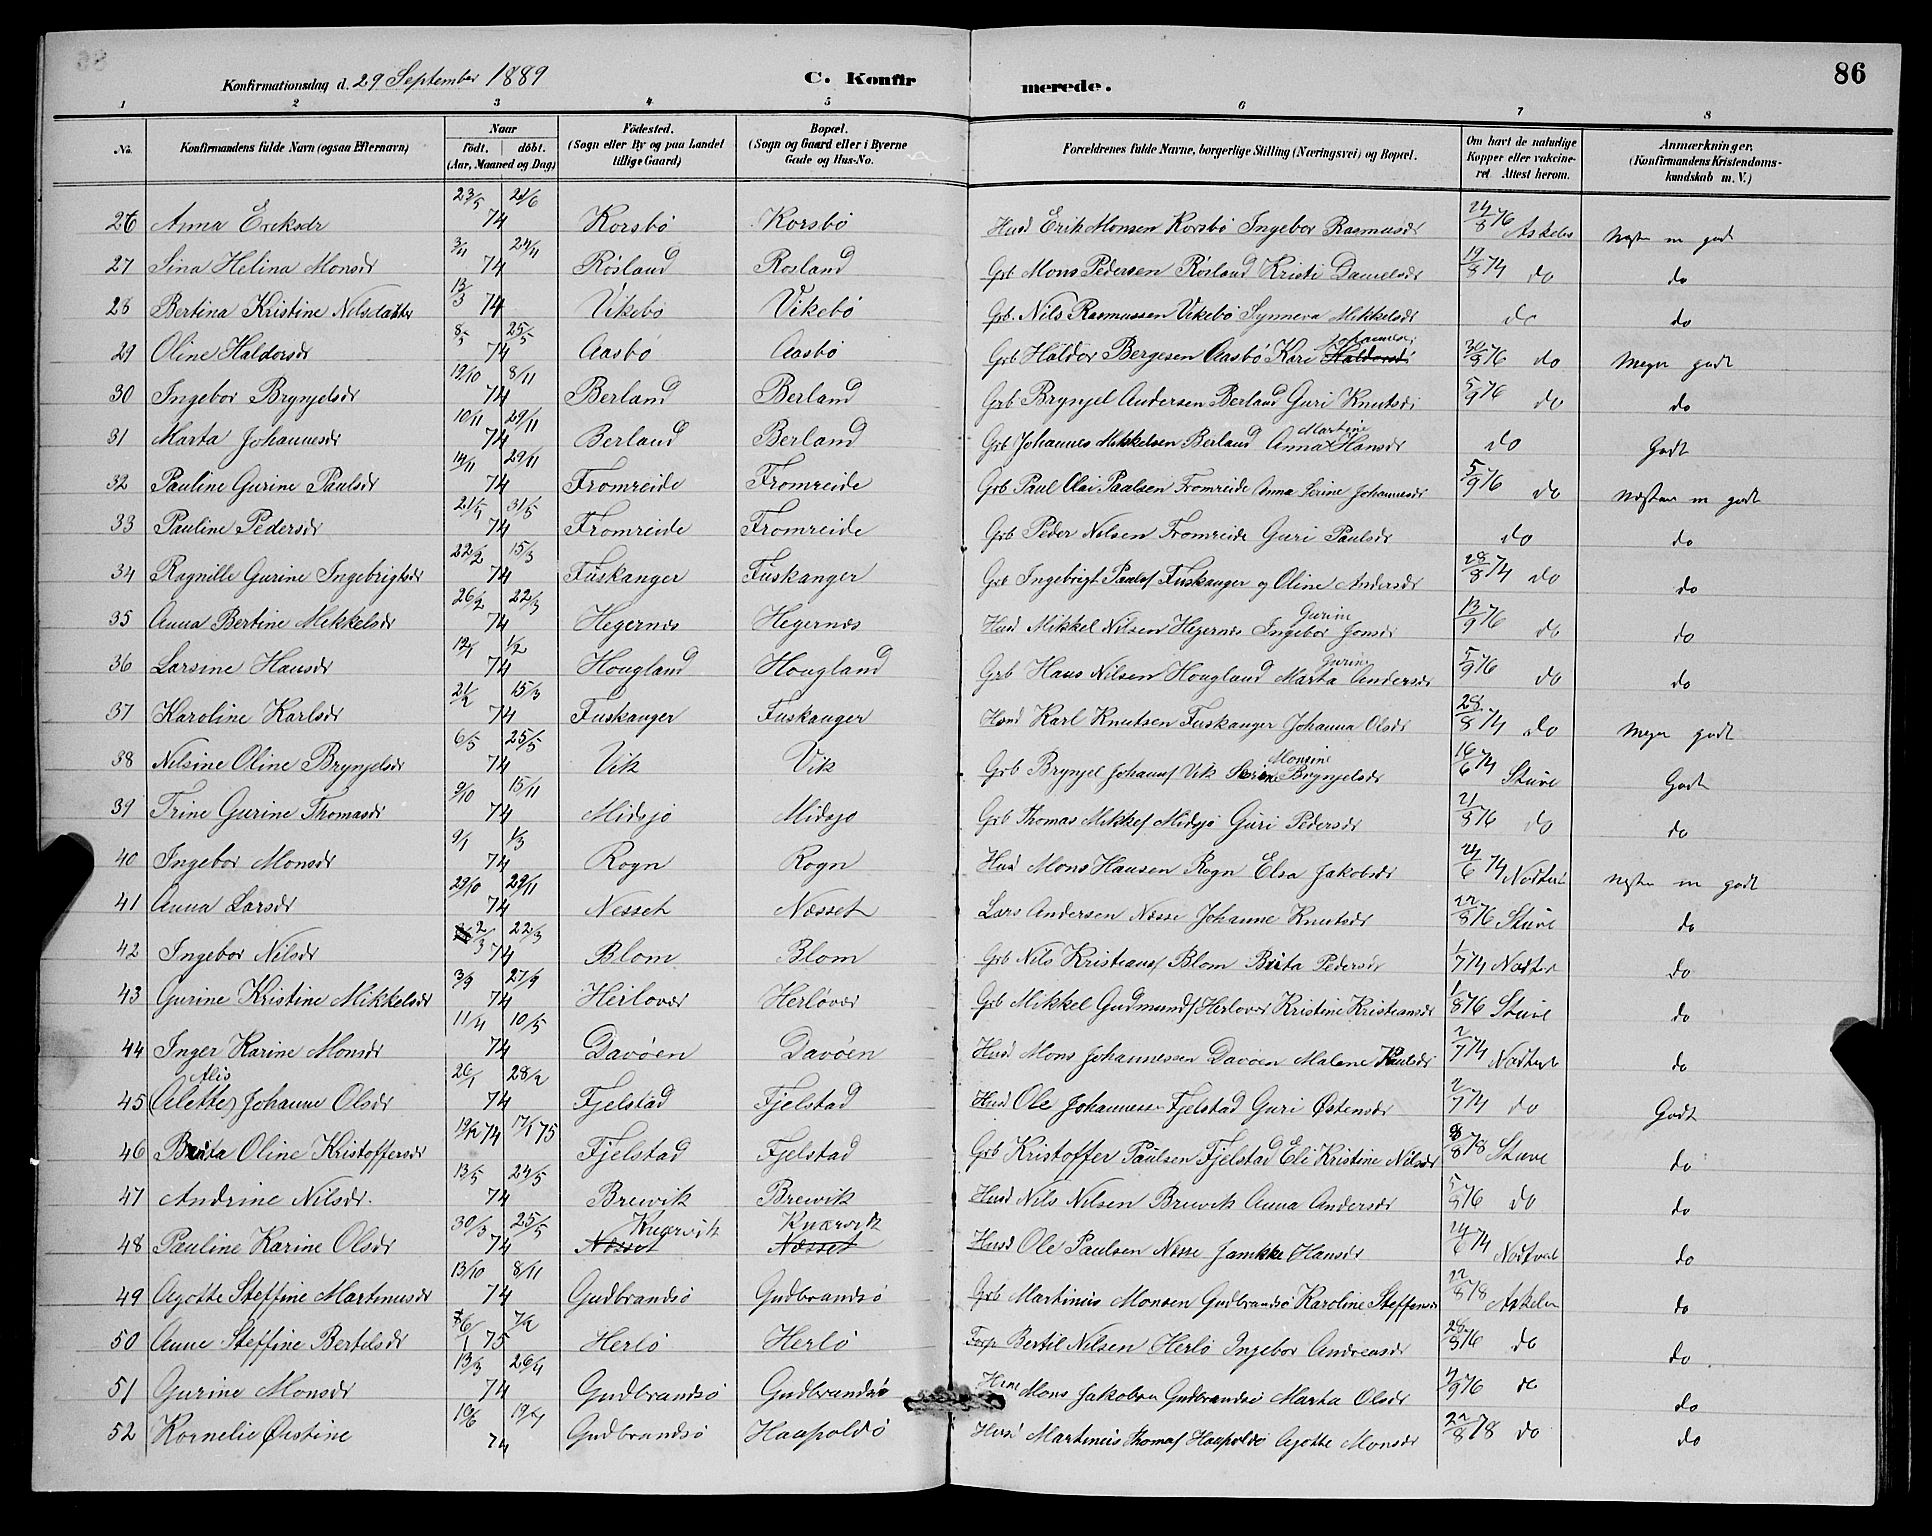 Konfirmationsdag d. 29 September 1889 C. Konfirmerede. 86
1 2 3 4 5 6 7 8
No. Konfirmandens fulde Navn (ogsaa Efternavn) Naar födt. döbt. (Aar, Maaned og Dag) Födested. (Sogn eller By og paa Landet tillige Gaard) Bopæl. (Sogn og Gaard eller i Byerne Gade og Hus-No. Forældrenes fulde Navne, borgerlige Stilling (Næringsvei) og Bopæl. Om havt de naturlige Kopper eller vakcineret. Attest herom. Anmærkninger. (Konfirmandens Kristendomskundskab m. V.)
26 Anna Eriksdr 23/5 21/6 74 Korsbö Korsbö Husd Erik Monsen Korsbö Ingebor Rasmusdr 24/8 76 Askelv Næsten m godt
27 Sina Helina Monsdr 3/11 24/11 74 Rösland Rosland Grb Mons Pedersen Rösland Kristi Danielsdr 19/8 74 do do
28 Bertina Kristine Nilsdatter 13/3 74 Vikebö Vikebö Grb. Nils Rasmussen Vikebö Synneva Mikkelsdr do do
29 Oline Haldorsdr 8/5 25/5 74 Aasbo Aasbö Grb Haldor Bergesen Aasbö Kari Haldorsdr Johannesdr 30/8 76 do Meget godt
30 Ingebor Brynjelsdr 12/10 8/11 74 Berland Berland Grb Brynjel Andersen Berland Guri Knutsdr 5/9 76 do do
31 Marta Johannesdr 10/11 29/11 74 Berland Berland Grb Johannes Mikkelsen Berland Anna Martine Hansdr do Godt
32 Pauline Gurine Paulsdr 14/11 29/11 74 Fromreide Fromreide Grb Paul Olai Paulsen Fromreide Anna Serine Johannesdr 5/9 76 do Næsten m godt
33 Pauline Pedersdr 21/5 31/5 74 Fromreide Fromreide Grb Peder Nilsen Fromreide Guri Paulsdr do do
34 Ragnille Gurine Ingebrigtsdr 22/2 15/3 74 Fuskanger Fuskanger Grb Ingebrigt Pauls Fuskanger og Oline Andersdr 28/8 74 do do
35 Anna Bertine Mikkelsdr 26/2 22/3 74 Hegernes Hegernes Husd Mikkel Nilsen Hegernes Ingebor Gurine Jonsdr 13/9 76 do do
36 Larsine Hansdr 12/1 1/2 74 Hougland Hougland Grb Hans Nilsen Hougland Marta Gurine Andersdr 5/9 76 do do
37 Karoline Karlsdr 21/2 15/3 74 Fuskanger Fuskanger Husd Karl Knutsen Fuskanger Johanna Olsdr 28/8 74 do Meget godt
38 Nilsine Oline Brynjelsdr 6/5 25/5 74 Vik Vik Grb Brynjel Johans Vik Monsine Brynjelsdr 16/6 74 Stuve Godt
39 Trine Gurine Thomasdr 9/10 15/11 74 Midsjo Midsjo Grb Thomas Mikkels Midsjö Guri Pedersdr 21/8 76 do do
40 Ingebor Monsdr 9/1 1/3 74 Rogn Rogn Husd Mons Hansen Rogn Elsa Jakobsdr 24/6 74 Nodtvet Næsten m godt
41 Anna Larsdr 29/10 29/11 74 Nesset Næsset Lars Andersen Nesse Johanne Knutsdr 22/8 76 Stuve do
42 Ingebor Nilsdr 2/3 22/3 74 Blom Blom Grb Nils Kristians Blom Brita Pedersdr 1/7 74 Nodtvet do
43 Gurine Kristine Mikkelsdr 3/9 27/9 74 Herlover Herlöver Grb Mikkel Gudmunds Herlover Kristine Kristiansdr 1/8 76 Stuve do
44 Inger Karine Monsdr 11/4 10/5 74 Davöen Davöen Husd Mons Johannesen Davoen Malene Paulsdr 2/7 74 Nodtvet do
45 (Alette) Alis Johanne Olsdr 26/1 28/2 74 Fjelstad Fjelstad Husd Ole Johannesen Fjelstad Guri Østensdr 2/7 74 do Godt
46 Brita Oline Kristoffersdr 19/12 74 17/1 75 Fjelstad Fjelstad Grb Kristoffer Paulsen Fjelstad Eli Kristine Nilsdr 8/8 78 Stuve do
47 Andrine Nilsdr. 13/5 24/5 74 Brewik Brewik Husd Nils Nilsen Brewik Anna Andersdr 5/9 76 do do
48 Pauline Karine Olsdr 30/3 25/5 74 Næsset Knærvik Næsset Knærvik Husd Ole Paulsen Nesse Jamkke Hansdr 24/6 74 Nodtvet do
49 Agotte Steffine Martinusdr 13/10 8/11 74 Gudbrandsö Gudbrandsö Grb Martinus Monsen Gudbrandsö Karoline Steffensdr 22/8 78 Askelv do
50 Anne Steffine Bertelsdr 6/1 7/2 75 Herlö Herlö Forp Bertil Nilsen Herlö Ingebor Andreasdr 28/8 76 do do
51 Gurine Monsdr 13/3 26/4 74 Gudbrandsö Gudbrandsö Mons Jakobsen Gudbrandsö Marta Olsdr 4/9 76 do do
52 Kornelie Østine 10/6 19/7 74 Gudbrandsö Haapoldö Husd Martinus Thomas Haapoldö Agotte Monsdr 22/8 78 do do